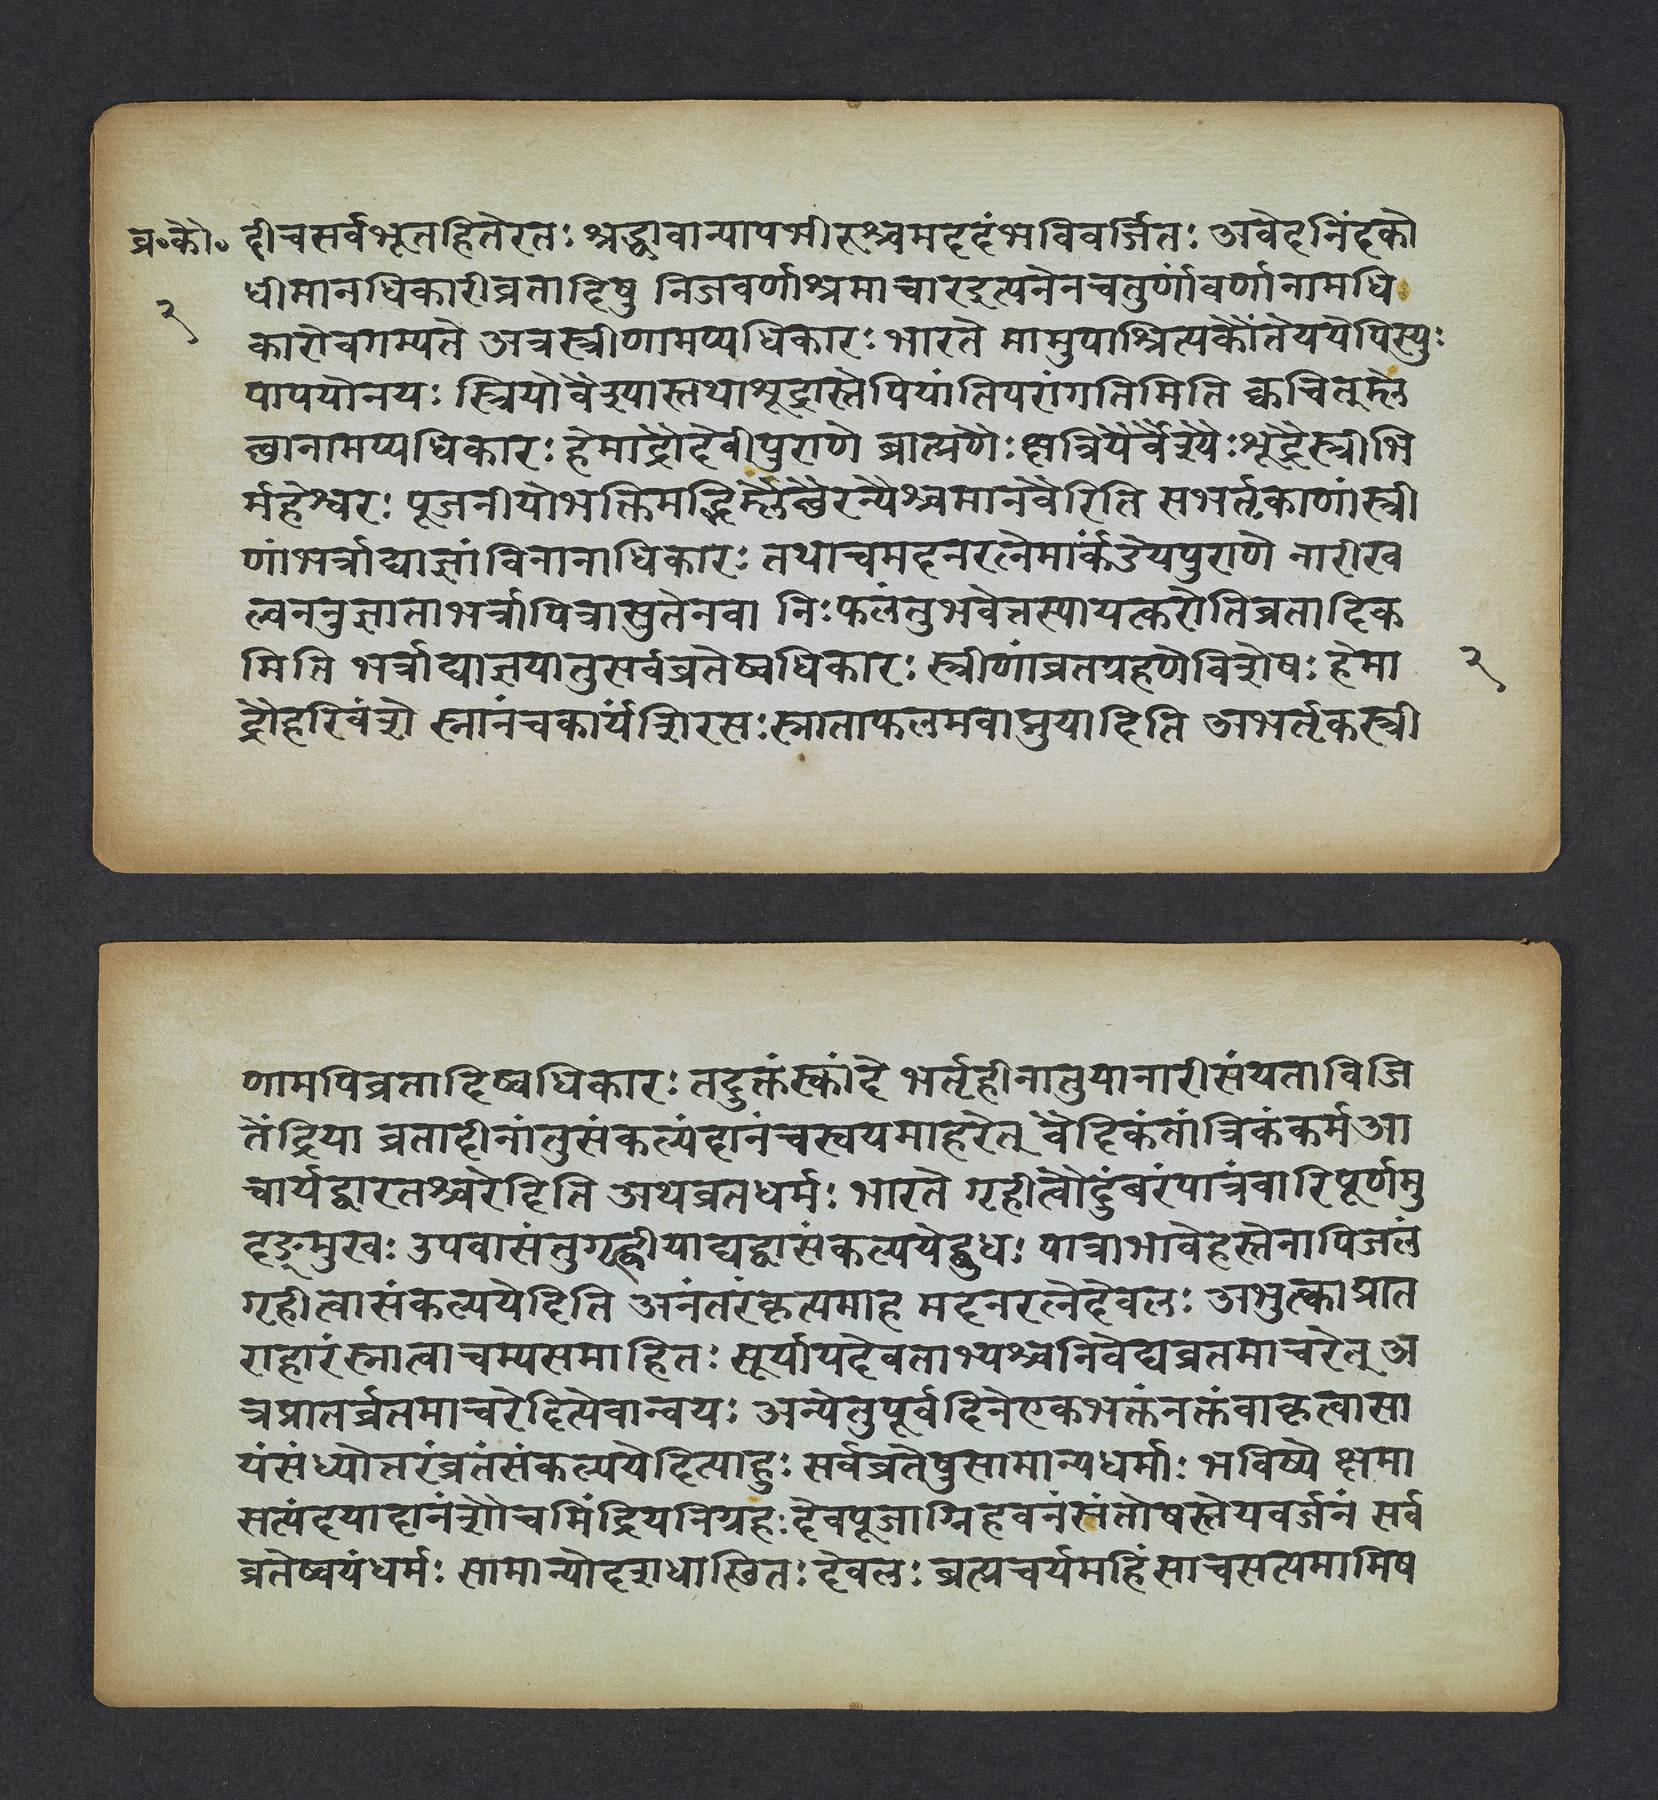 व्र॰कौ॰ दीचसर्वभूतहितेरतः श्रद्धावान्पापभीरुश्चमददंभविवर्जितः अवेदनिंदको
२
धीमानधिकारीव्रतादिषु निजवर्णाश्रमाचारइत्यनेनचतुर्णांवर्णानामधि
कारोवगम्यते अत्रस्त्रीणामप्यधिकारः भारते मामुपाश्रित्यकौंतेययेपिस्युः
पापयोनयः स्त्रियोवैश्यास्तथाशूद्रास्तेपियांतिपरांगतिमिति क्वचित्म्ले
छानामप्यधिकारः हेमाद्रौदेवीपुराणे ब्राह्मणैः क्षत्रियैर्वैश्यैः शूद्रैस्त्रीभि
र्महेश्वरः पूजनीयोभक्तिमद्भिर्म्लेछैरन्यैश्चमानवैरिति सभर्तृकाणांस्त्री
णांभर्त्राद्याज्ञांविनानाधिकारः तथाचमदनरत्नेमार्कंडेयपुराणे नारीख
ल्वननुज्ञाताभर्त्रापित्रासुतेनवा निःफलंतुभवेत्तस्यायत्करोतिव्रतादिक
मिति भर्त्राद्याज्ञयातुसर्वव्रतेष्वधिकारः स्त्रीणांव्रतग्रहणेविशेषः हेमा
२
द्रौहरिवंशे स्नानंचकार्यंशिरसःस्नाताफलमवाप्नुयादिति अभर्तृकस्त्री
णामपिव्रतादिष्वधिकारः तदुक्तंस्कांदे भर्तृहीनातुयानारीसंयताविजि
तेंद्रिया व्रतादीनांतुसंकल्पंदानंचस्वयमाहरेत् वैदिकंतांत्रिकंकर्मआ
चार्यद्वारतश्चरेदिति अथव्रतधर्मः भारते गृहीत्वौदुंबरंपात्रंवारिपूर्णमु
दङ्मुखः उपवासंतुगृह्णीयाद्यद्वासंकल्पयेद्बुधः पात्राभावेहस्तेनापिजलं
गृहीत्वासंकल्पयेदिति अनंतरंकृत्यमाह मदनरत्नेदेवलः अभुत्काप्रात
राहारंस्नात्वाचम्यसमाहितः सूर्यायदेवताभ्यश्चनिवेद्यव्रतमाचरेत् अ
त्रप्रातर्व्रतमाचरेदित्येवान्वयः अन्येतुपूर्वदिनेएकभक्तंनक्तंवाकृत्वासा
यंसंध्योत्तरंव्रतंसंकल्पयेदित्याहुः सर्वव्रतेषुसामान्यधर्माः भविष्ये क्षमा
सत्यंदयादानंशौचमिंद्रियनिग्रहः देवपूजाग्निहवनंसंतोषस्तेयवर्जनं सर्व
व्रतेष्वयंधर्मः सामान्योदशधास्थितः देवलः ब्रह्मचर्यमहिंसाचसत्यमामिष